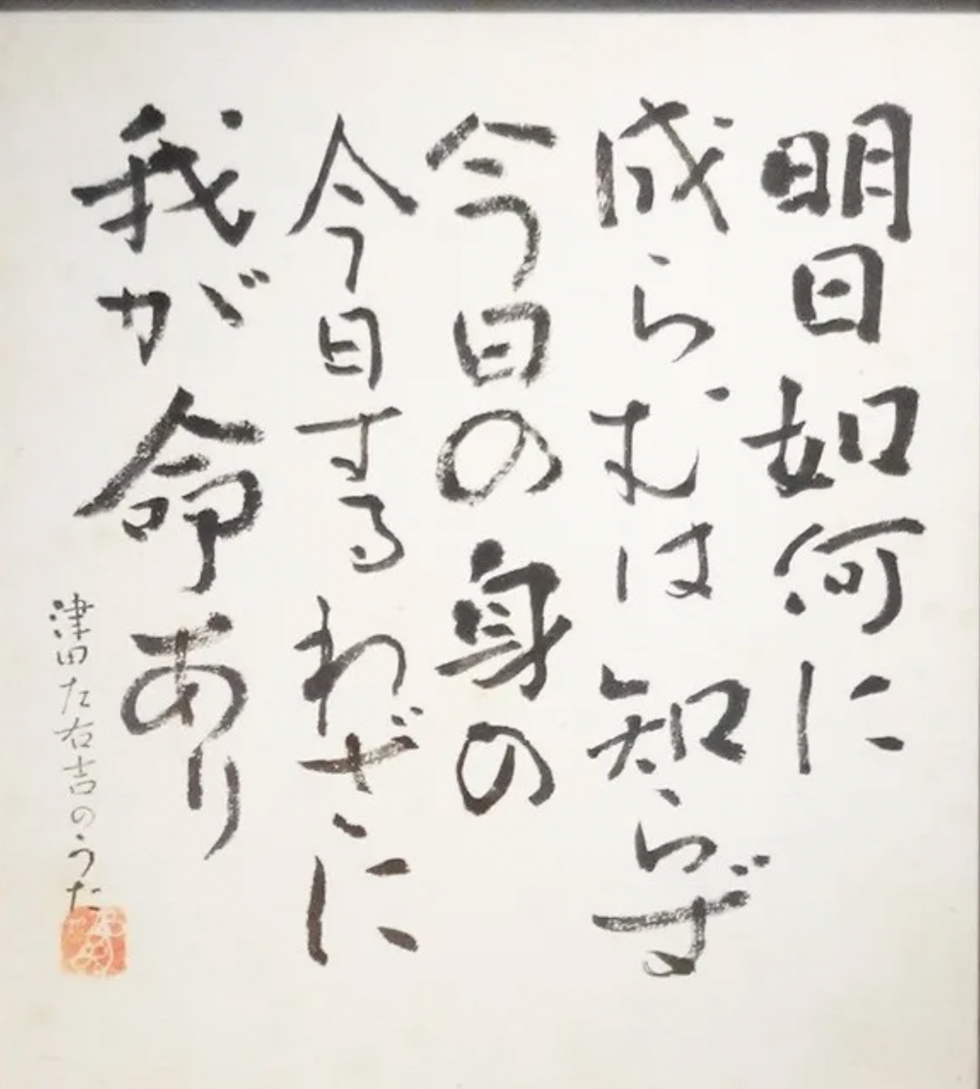 明日如何に
成らむは知らず
今日の身の
今日するわざに
我が命あり
津田左右吉のうた